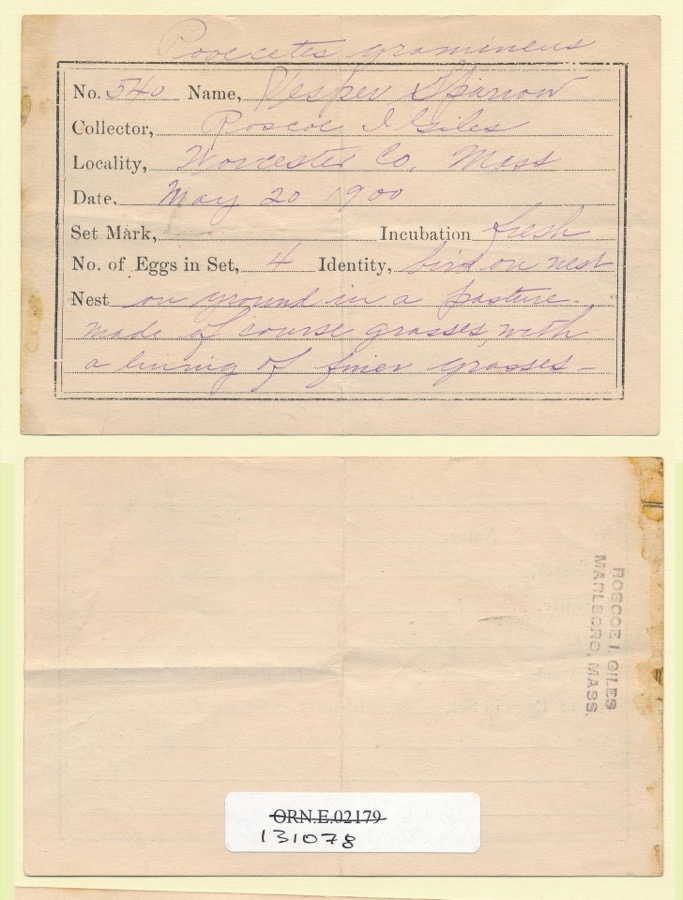 Pooecetes gramineus
No. 540 Name, Vesper Sparrow
Collector, Roscoe I Giles
Locality, Worcester Co. Mass
Date, May 20 1900
Set Mark, Incubation fresh
No. of Eggs in Set, 4 Identity, bird on nest
Nest on ground in a pasture.
made of course grasses, with
a lining of finer grasses –
ROSCOE I. GILES
MARLBORO, MASS.
ORN.E.02179
131078